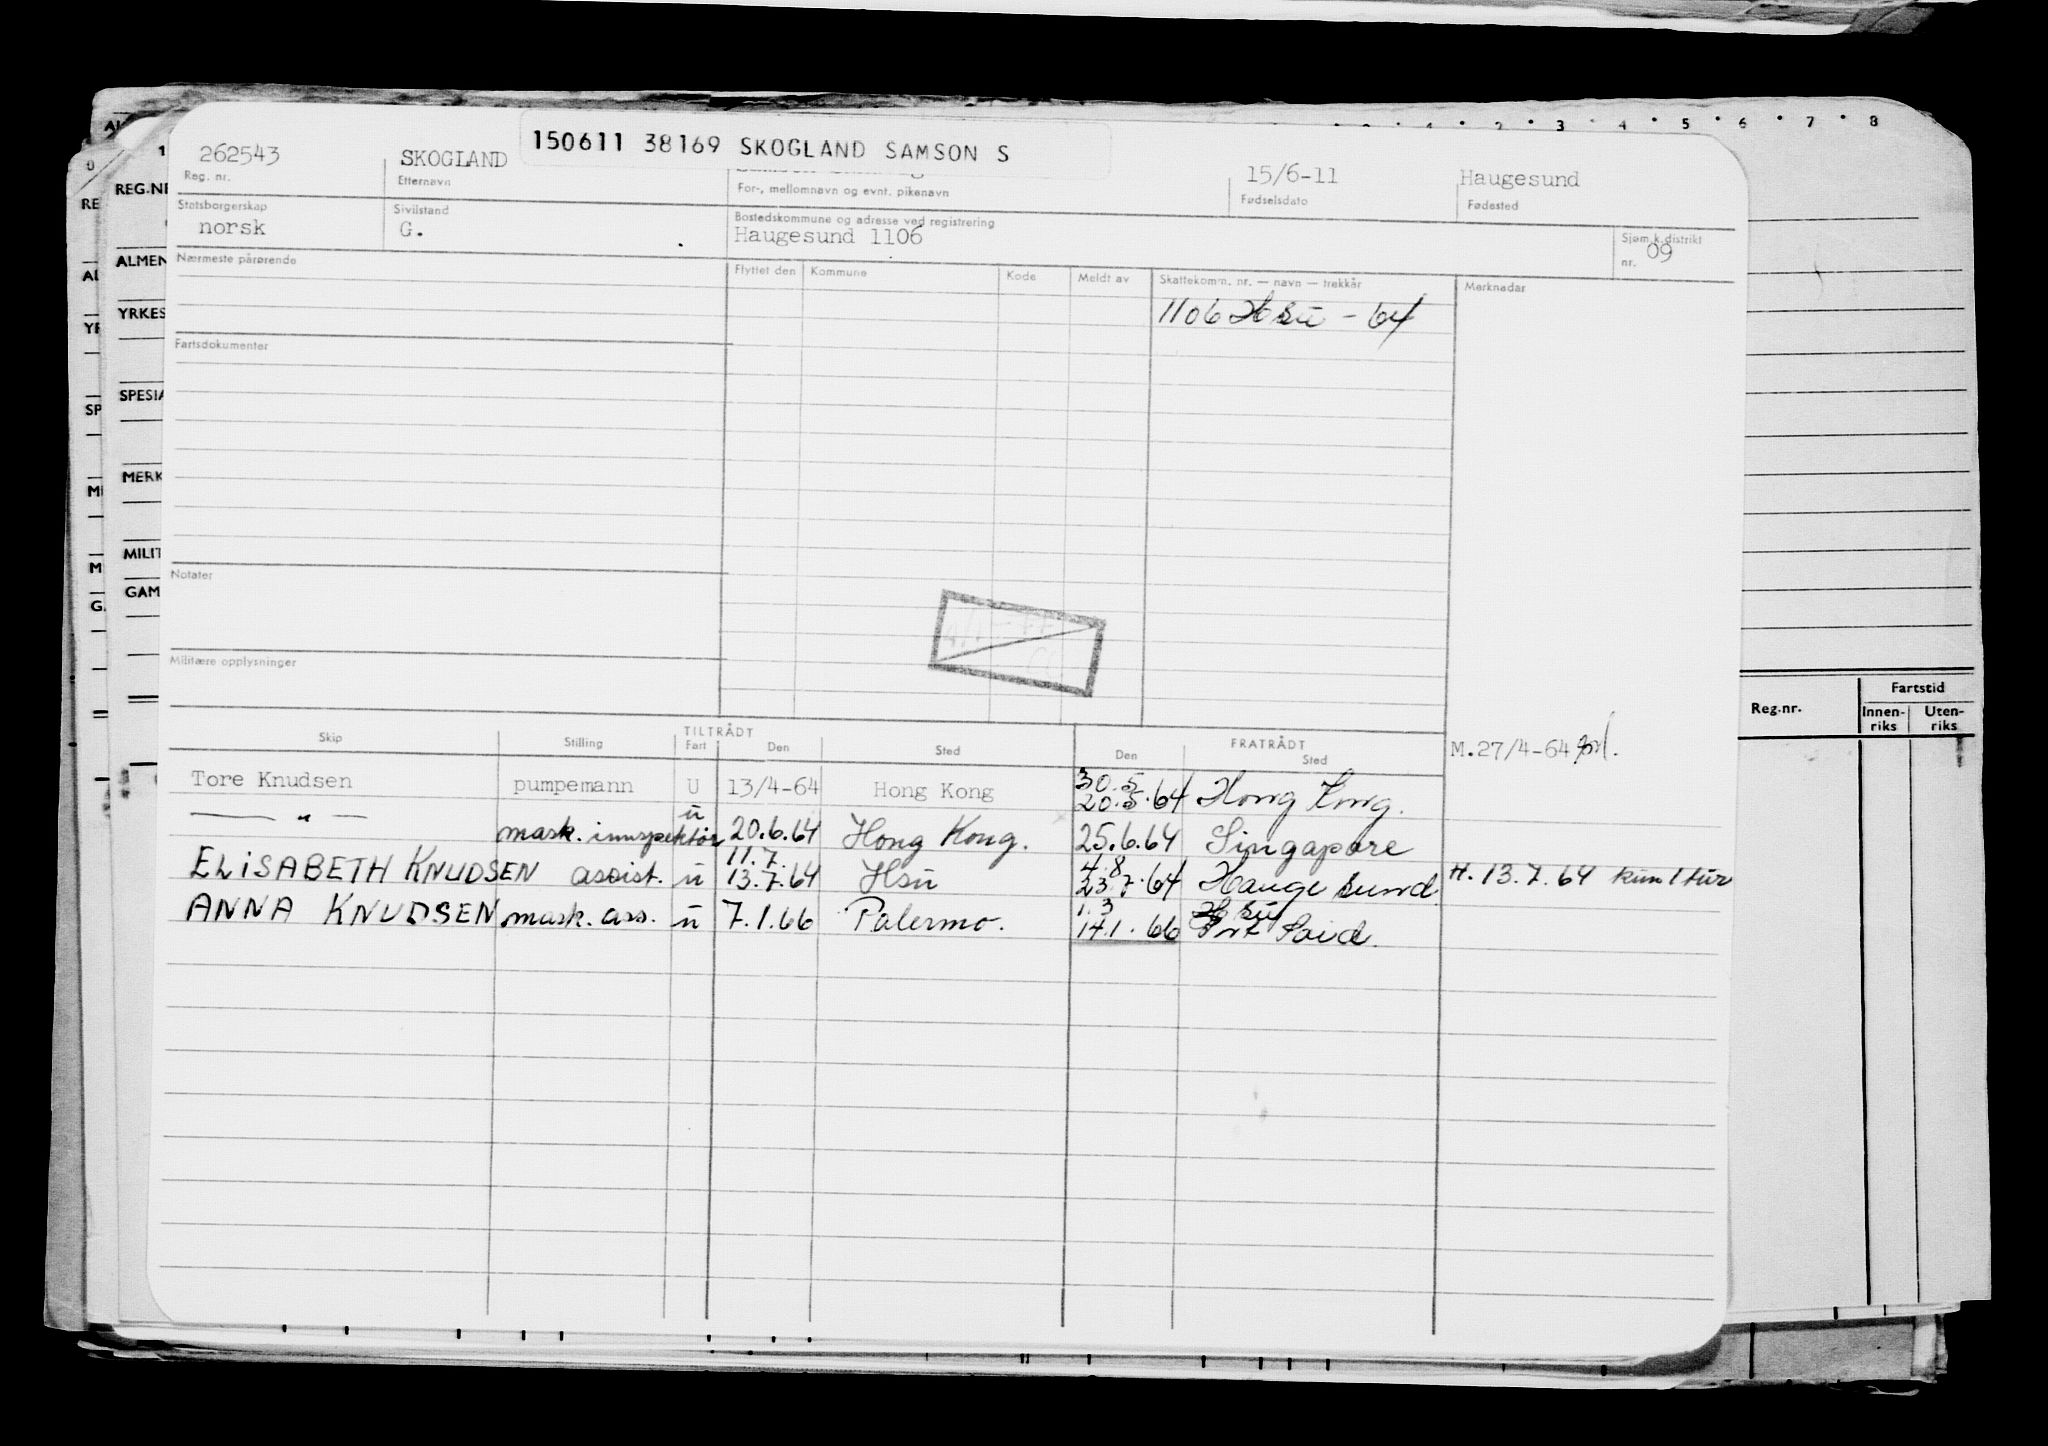 150611 38169 SKOGLAND SAMSON S
262543 SKOGLAND 15/6-11 Haugesund
Reg. nr. Etternavn For-, mellomnavn og evnt. pikenavn Fødselsdato Fødested
Statsborgerskap Sivilstand Bostedskommune og adresse ved registrering Sjøm.k.distrikt
norsk G. Haugesund 1106 nr. 09
Nærmeste pårørende Flyttet den Kommune Kode Meldt av Skattekomm. nr. — navn — trekkår Merknader
1106 Hsū - 64
Fartsdokumenter
Notater
Militære opplysninger
Skip Stilling TILTRÅDT FRATRÅDT
Fart Den Sted Den Sted
M.27/4-64
Tore Knudsen pumpemann U 13/4-64 Hong Kong 30.5 20.5.64 Hong Kong.
— " — mask. innspektør ū 20.6.64 Hong Kong. 25.6.64 Singapore
ELISABETH KNUDSEN assist. ū 11.7. 13.7.64 Hsū 4.8 23.7.64 Haugesund H. 13.7.64 kun 1 tur
ANNA KNUDSEN mask. ass. ū 7.1.66 Palermo. 1.3 14.1.66 Hsū Port Said.
REG.NR
ALMEN
YRKES
SPESIA
MERK
MILIT
GAM
1 2 3 4 5 6 7 8
Reg.nr. Fartstid
Innen-riks Uten-riks